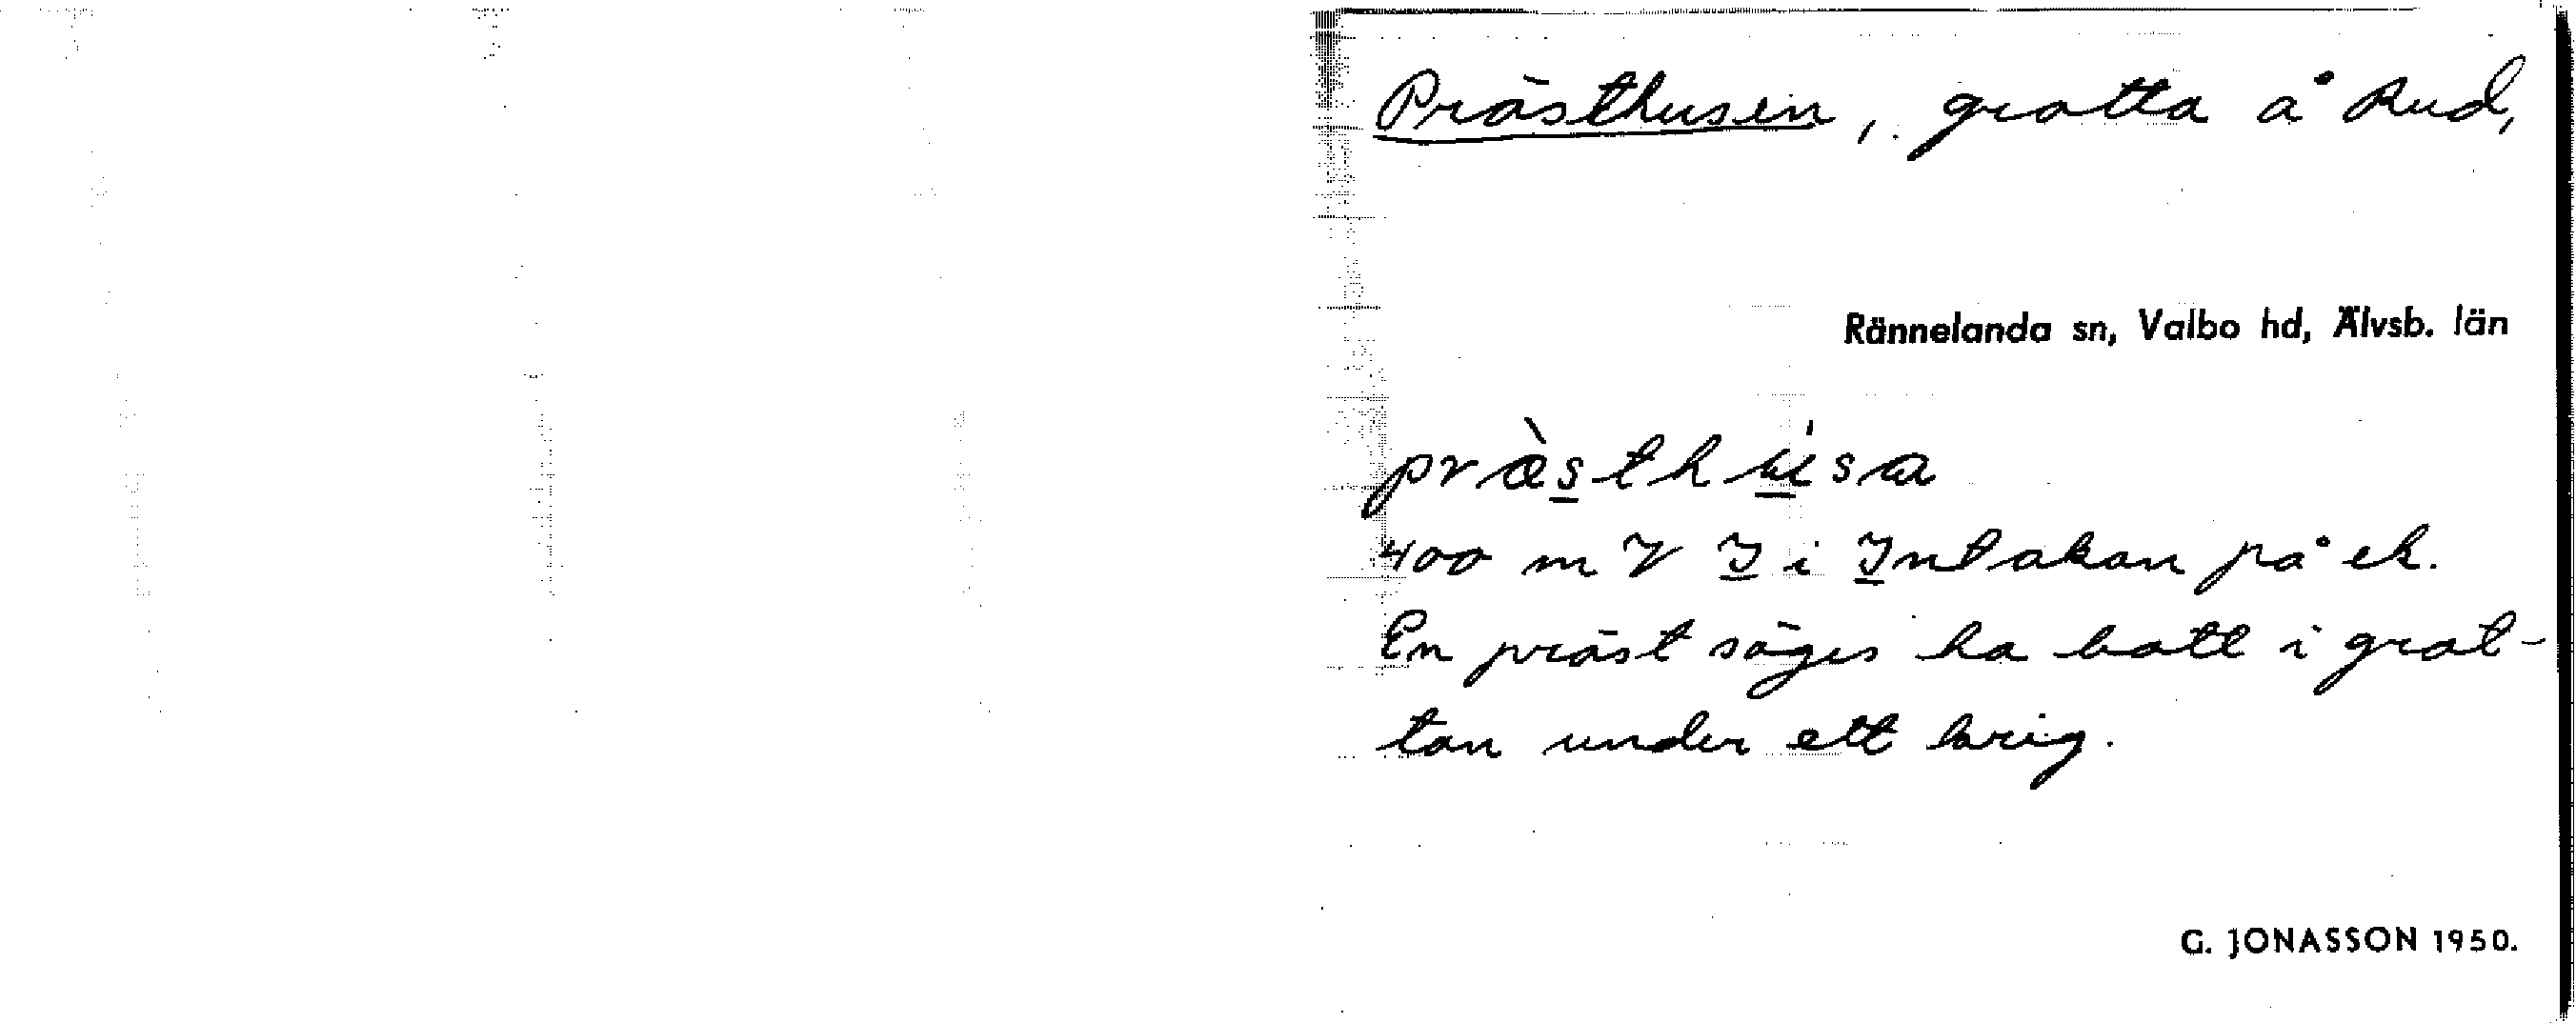 Prästhusen, grotta å Rud,
Rännelanda sn, Valbo hd, Älvsb. län
præ̀sthúsa
400 m V I i Intakan på ek.
En präst säges ha bott i grot-
tan under ett krig.
G. JONASSON 1950.